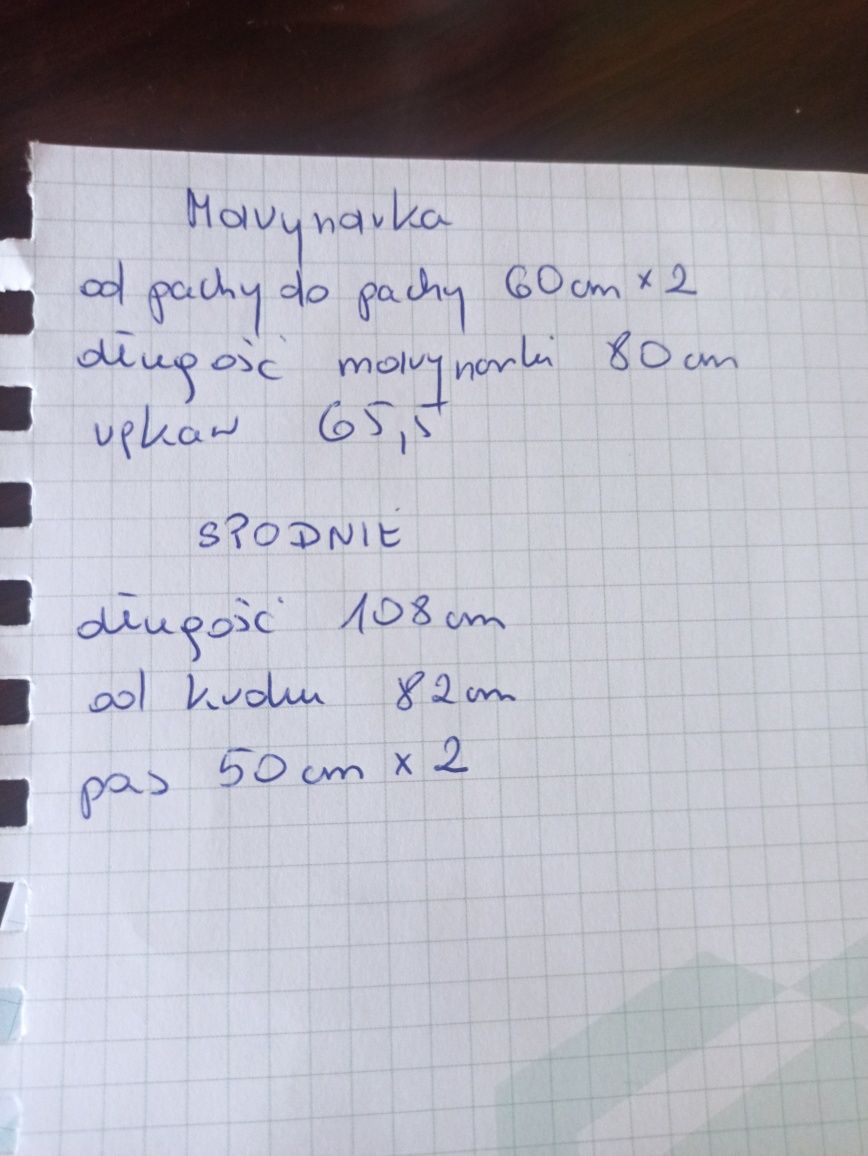 Marynarka
od pachy do pachy 60cm x 2
długość marynarki 80cm
rękaw 65,5
SPODNIE
długość 108cm
od kroku 82cm
pas 50cm x 2